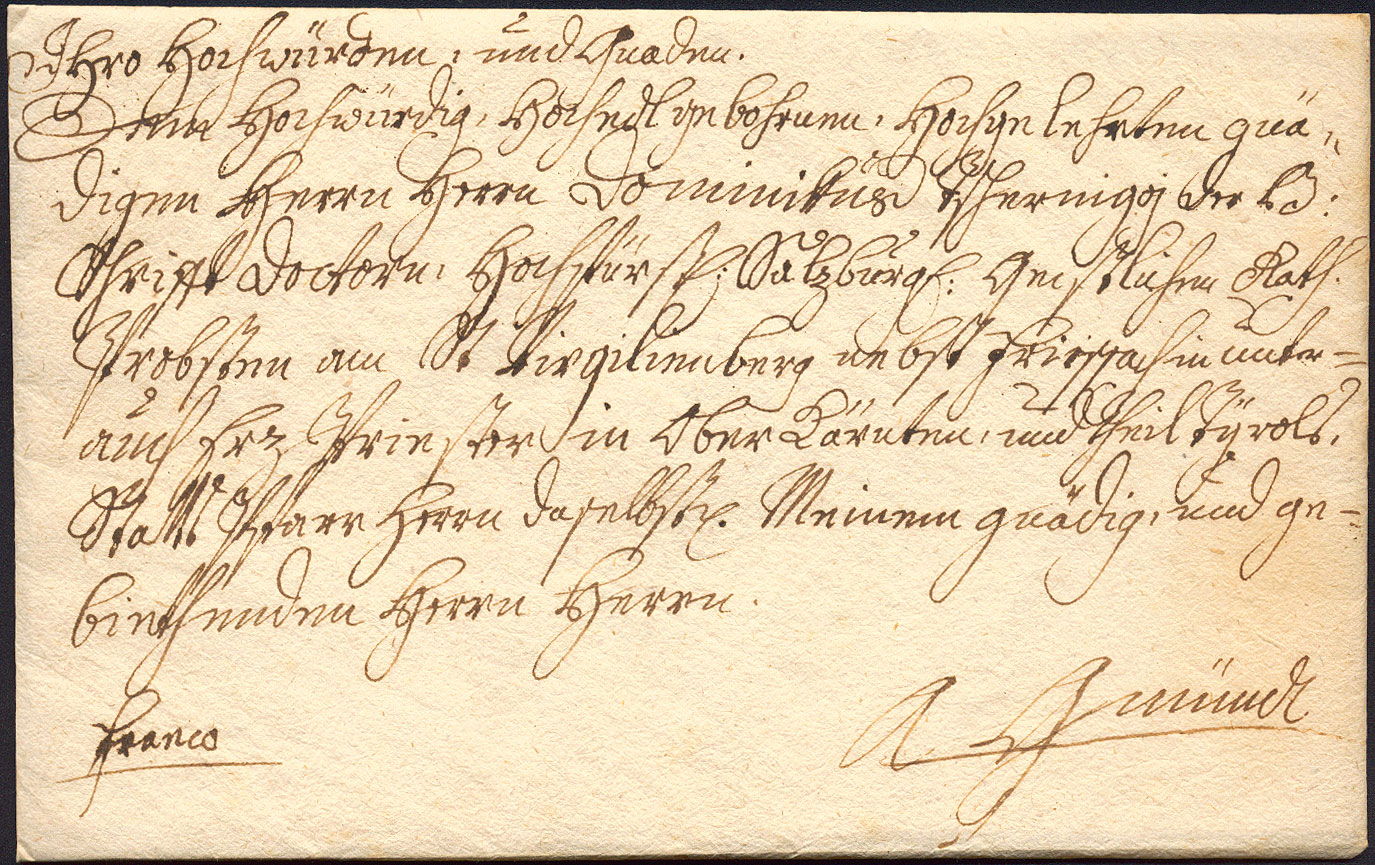 Ihro Hochwürden, und Gnaden.
Dem Hochwürdig, Hochedlgebohrnen, Hochgelehrten gnä„
digen Herrn Herrn Dominikus Tschernigoj der H:
Schrifft Doctorn, Hochfürstl: Salzburgl: Geistlichen Rath.
Probsten am St Virgilienberg nebst Friesach in unter=
auch Erz Priester in Ober Kärnten, und theil Tÿrols,
Statt Pfarr Herrn daselbst. Meinem gnädig, und ge=
biethenden Herrn Herrn.
Franco
A Gmündt